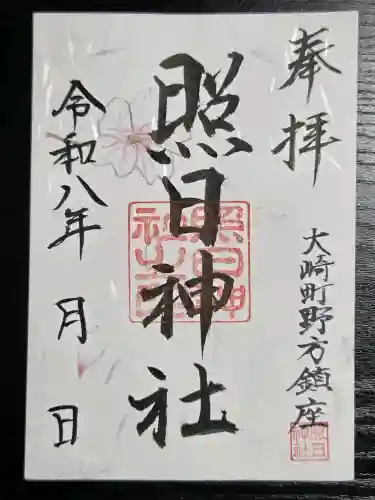 奉拝
大崎町野方鎮座
照日神社
令和八年 月 日
照日神社之印
照日神社